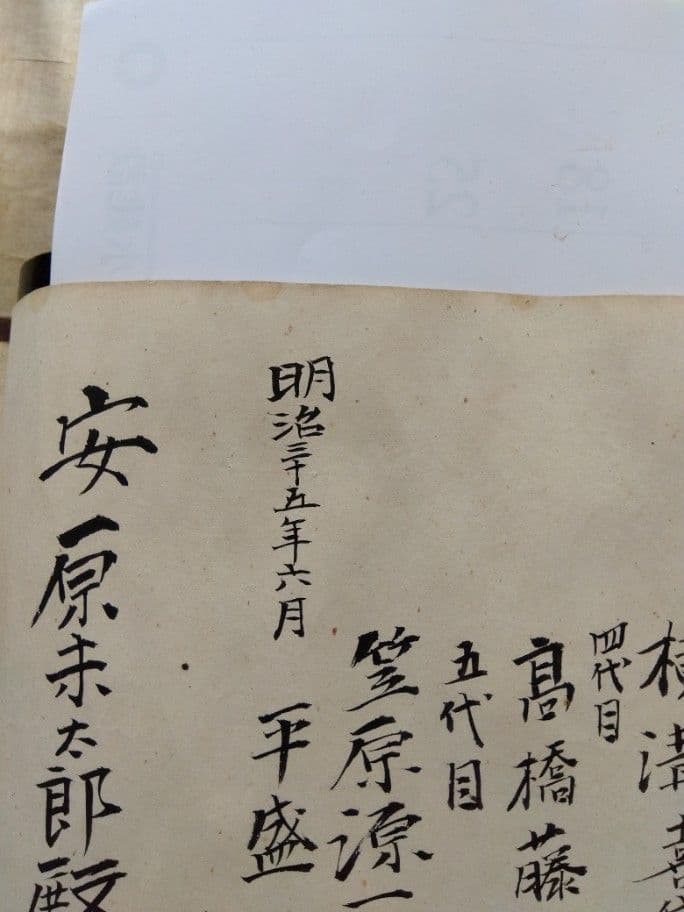 横溝喜
四代目
高橋藤
五代目
笠原源一
明治三十五年六月
平盛
安原未太郎殿